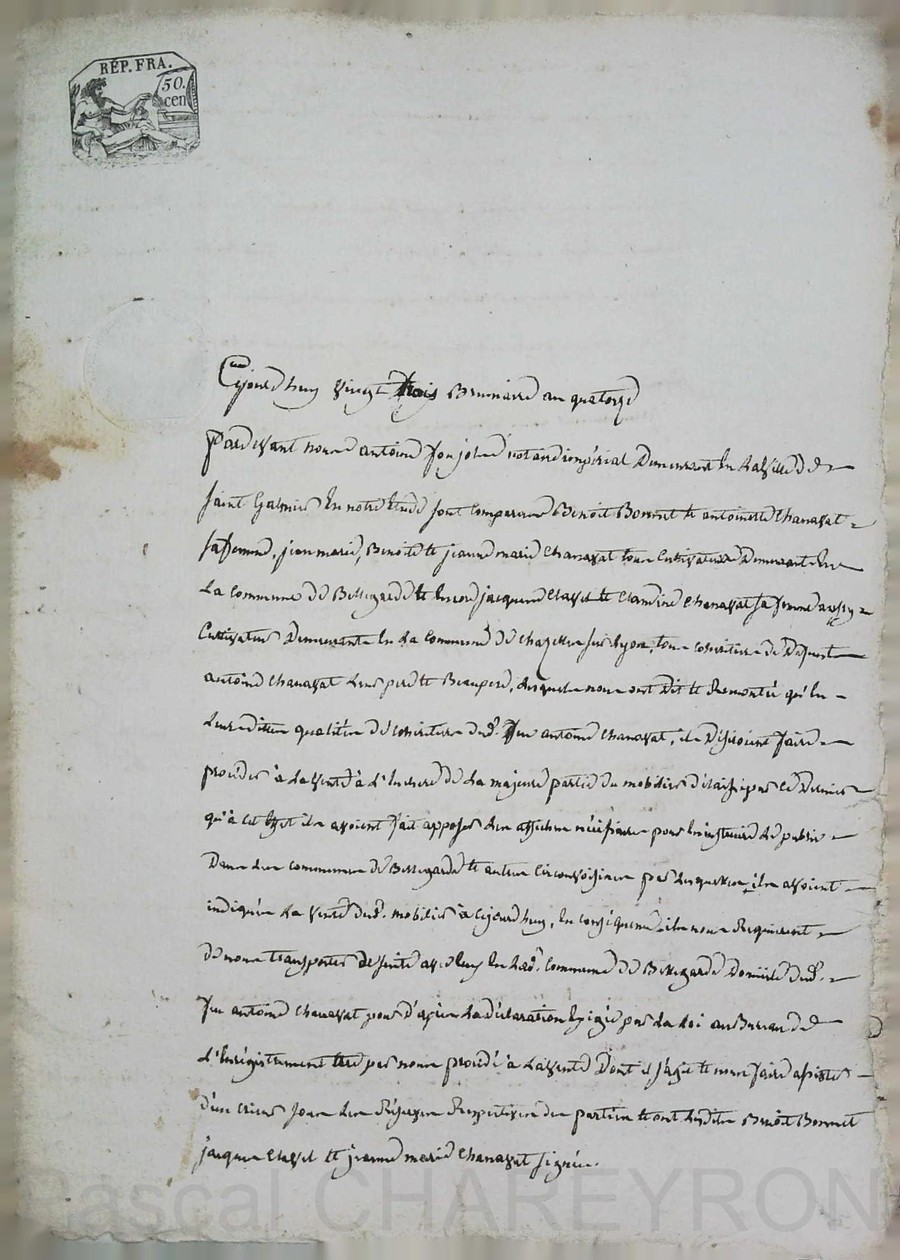 RÉP. FRA.
50.
cen
Cejourd'huy vingt trois Brumaire an quatorze
Pardevant nous antoine notaire impérial Demeurant en la Ville de
Saint Galmier En notre Etude sont comparus Benoit Bonnet et antoinette Chanavat
sa femme, jean marie, Benoite et jeanne marie Chanavat tous Cultivateurs Demeurants En
La Commune de Bellegarde et Encore jacques Clavel et Claudine Chanavat sa femme aussy
Cultivateurs Demeurants En La Commune de Chazelles sur Lyon, tous cohéritiers de Défunt
antoine Chanavat Leur père et Beaupère, Lesquels nous ont Dit et Remontré qu'En
Leursdittes qualités de cohéritiers dud. feu antoine Chanavat, ils Désiroient faire
procéder à La Vente à L'Enchere de La majeure partie du mobilier délaissé par ce Dernier
qu'à cet Effet ils avoient fait apposer des affiches nécéssaires pour En instruire Le public
Dans Les communes de Bellegarde et autres Circonvoisines par Lesquelles ils avoient
indiqués La Vente dud. mobilier à cejourd'huy, En conséquence ils nous Requierent
de nous transporter de suite avec Eux En Lad. Commune de Bellegarde Domicile dud.
feu antoine Chanavat pour D'après La déclaration Exigée par La Loi au Bureau de
L'Enregistrement Etre par nous procédé à La Vente Dont il s'agit et nous faire assister
d'un crieur sous Les Réserves Respectives des parties et ont Lesdits Benoit Bonnet
jacques Clavel et jeanne marie Chanavat signés.
Pascal CHAREYRON